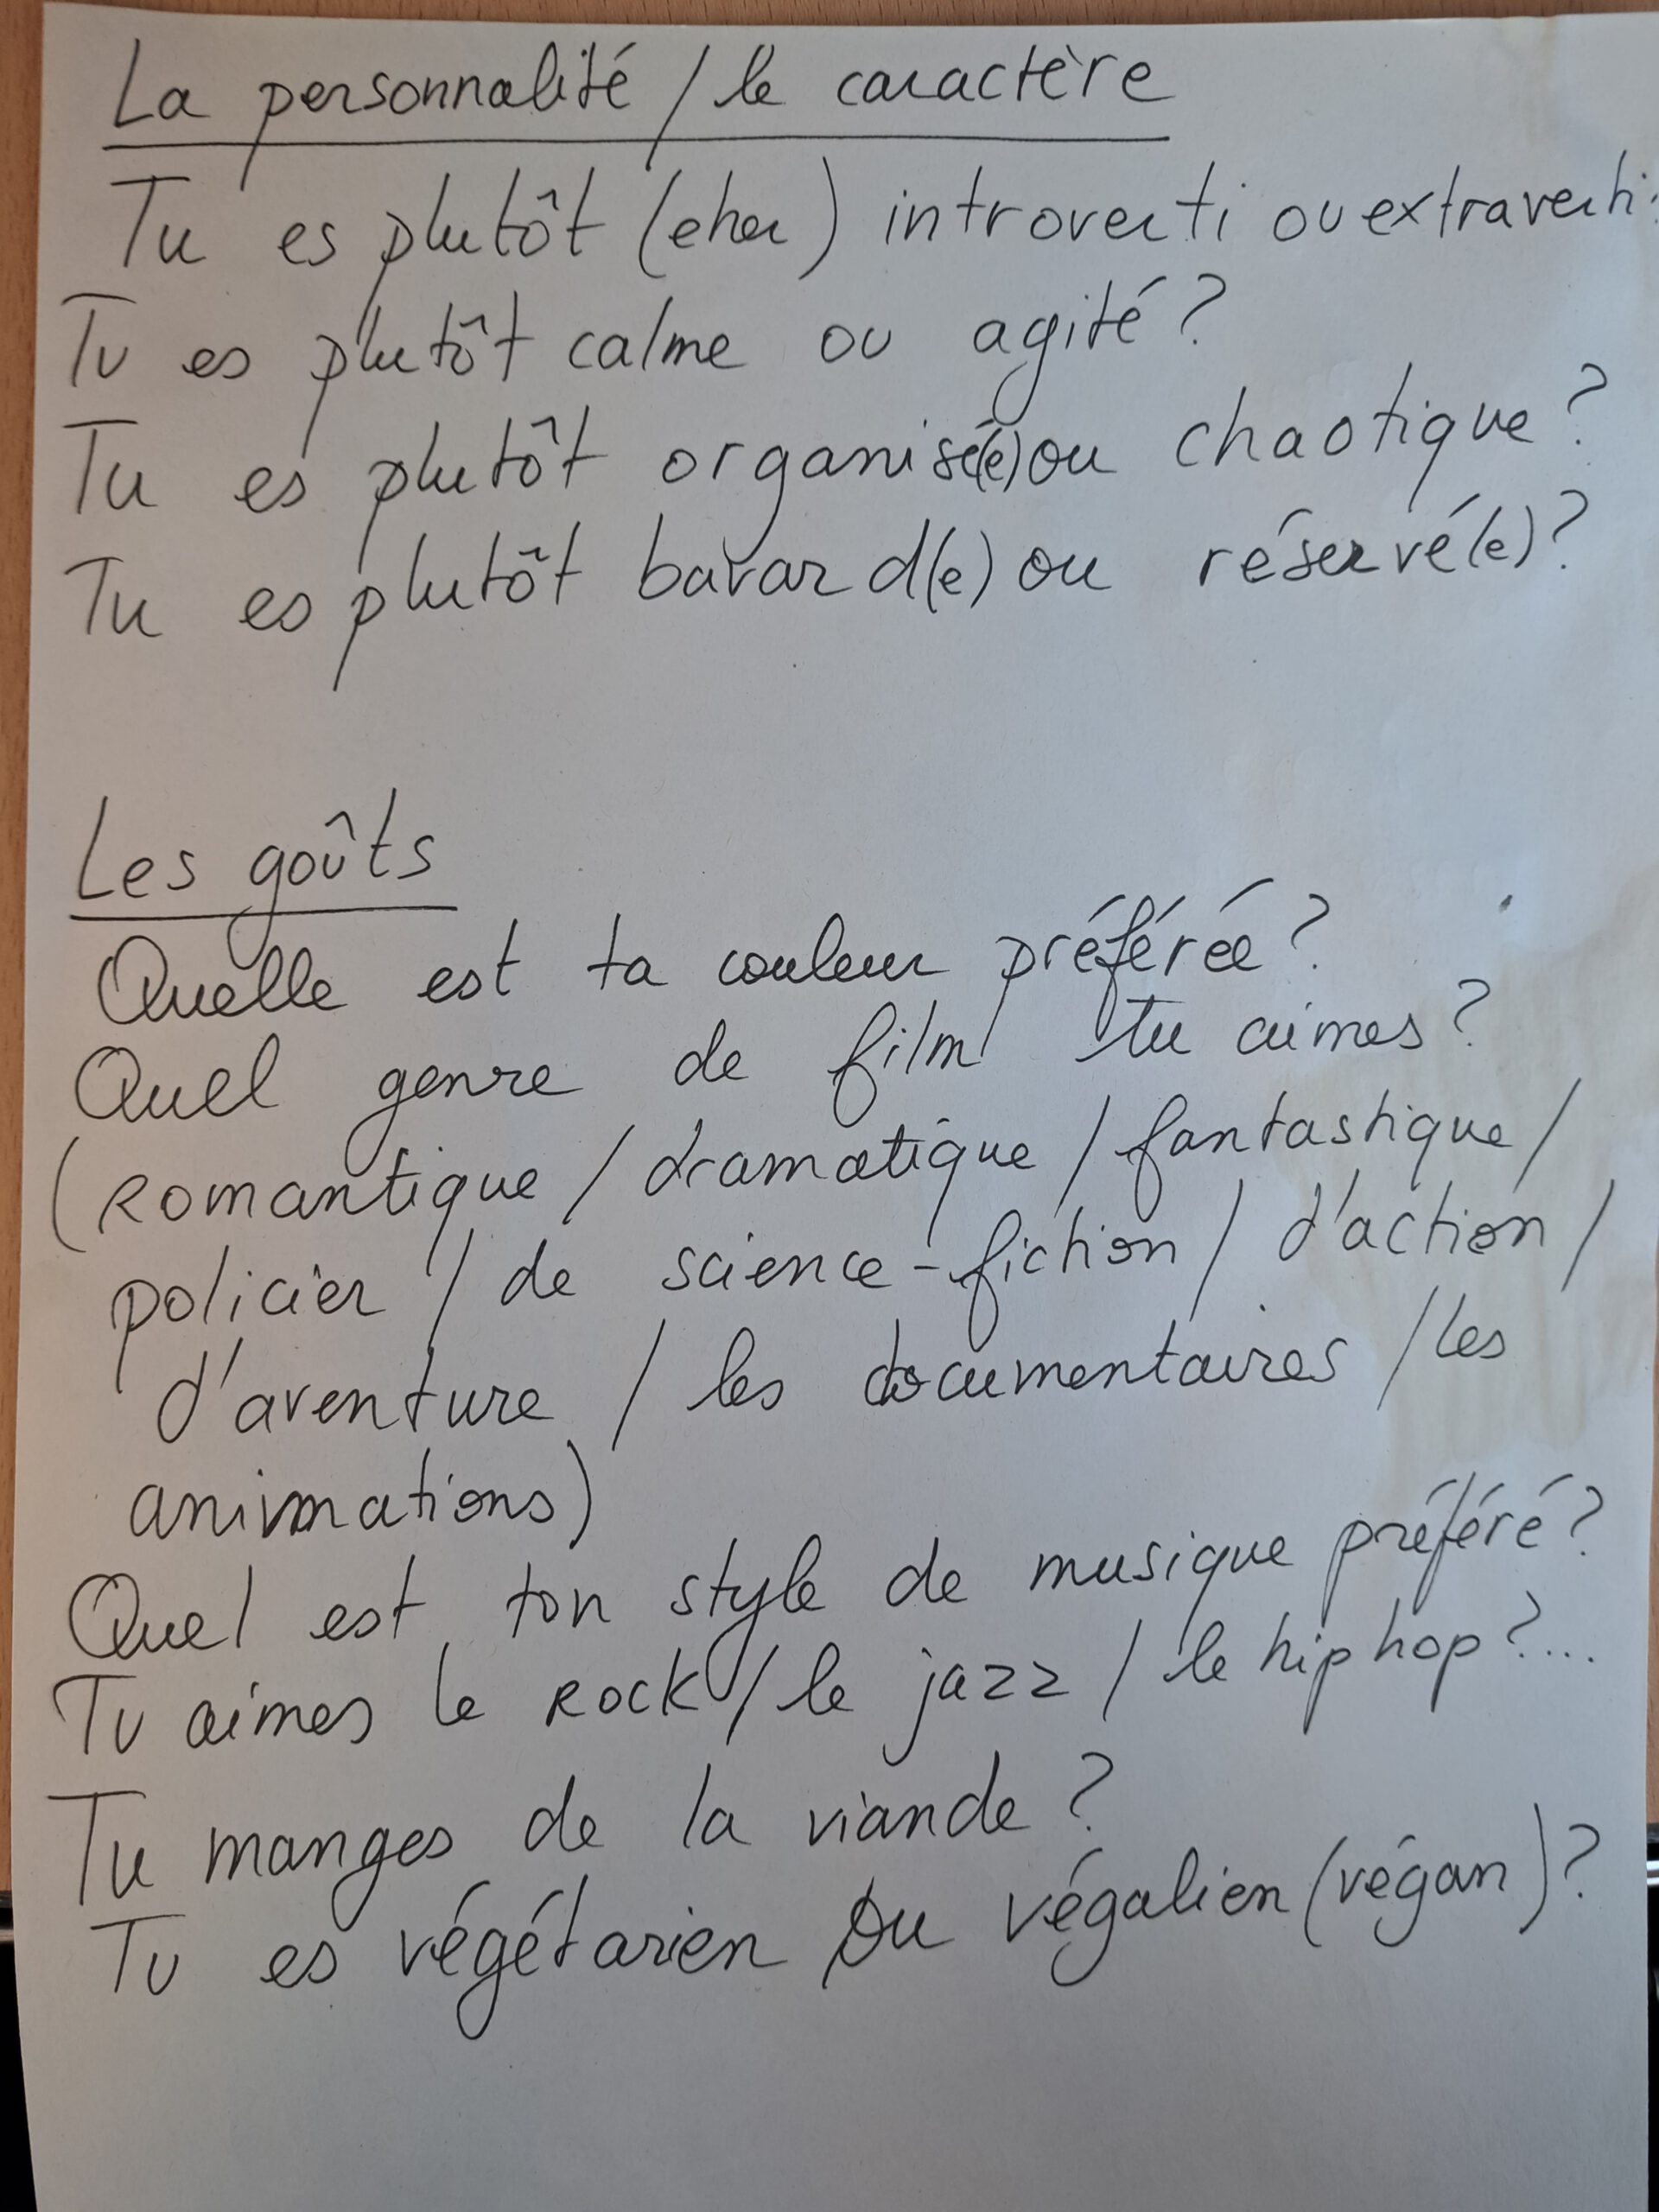 La personnalité / le caractère
Tu es plutôt (eher) introverti ou extraverti
Tu es plutôt calme ou agité ?
Tu es plutôt organisé(e) ou chaotique ?
Tu es plutôt bavard(e) ou réservé(e) ?
Les goûts
Quelle est ta couleur préférée ?
Quel genre de film tu aimes ?
(romantique / dramatique / fantastique /
policier / de science-fiction / d'action /
d'aventure / les documentaires / les
animations)
Quel est ton style de musique préféré ?
Tu aimes le rock / le jazz / le hip hop ?...
Tu manges de la viande ?
Tu es végétarien ou végalien (végan) ?